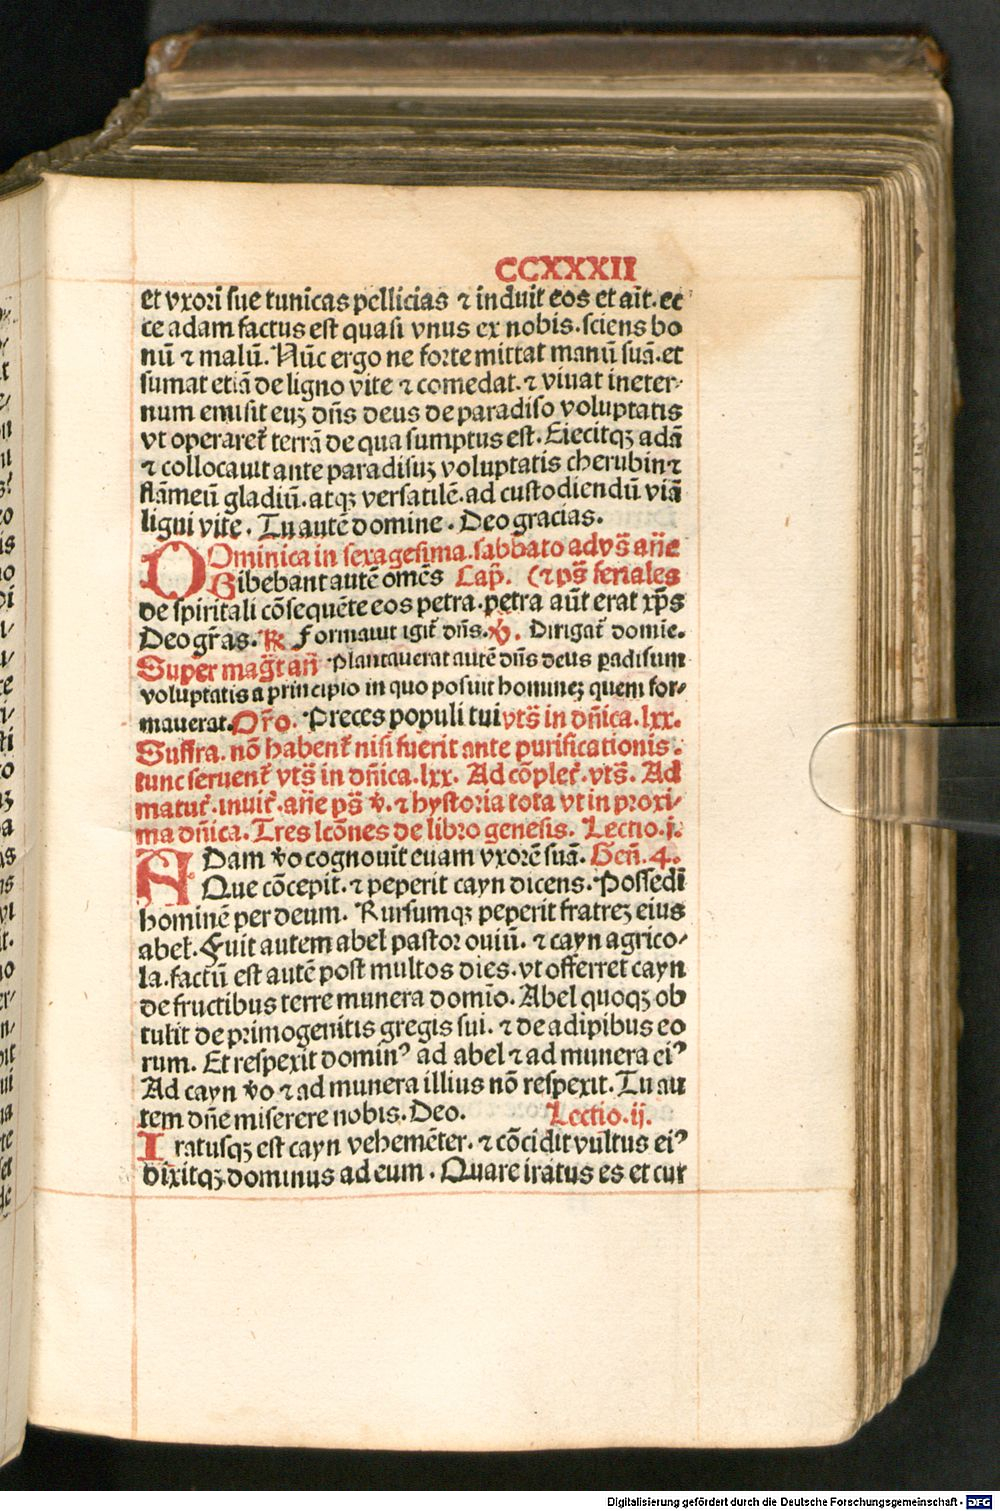 CCXXXII
et vxori sue tunicas pellicias ⁊ induit eos et ait. ec
ce adam factus est quasi vnus ex nobis. sciens bo
nū ⁊ malū. Nūc ergo ne forte mittat manū suā. et
sumat etiā de ligno vite ⁊ comedat. ⁊ viuat in eter-
num emisit euꝫ dn̄s deus de paradiso voluptatis
vt operaret᷑ terrā de qua sumptus est. Eiecitqꝫ adā
⁊ collocauit ante paradisuꝫ voluptatis cherubin ⁊
flāmeū gladiū. atqꝫ versatilē. ad custodiendū viā
ligni vite. Tu autē domine. Deo gracias.
DOminica in sexagesima. sabbato ad vs̄ an̄e
Bibebant autē omēs Cap̄. (⁊ ps̄ feriales
de spiritali cōsequēte eos petra. petra aūt erat xp̄s
Deo gr̄as. ℟ Formauit igit᷑ dn̄s. ℣. Dirigat᷑ domīe.
Super mag̅t an̄ Plantauerat autē dn̄s deus padisum
voluptatis a principio in quo posuit homineꝫ quem for-
mauerat. Or̄o. Preces populi tui vts̄ in dn̄ica. lxx.
Suffra. nō habent᷑ nisi fuerit ante purificationis.
tunc seruent᷑ vts̄ in dn̄ica. lxx. Ad cōplet᷑. vts̄. Ad
matut᷑. inuit᷑. an̄e ps̄ v̄. ⁊ hystoria tota vt in proxi-
ma dn̄ica. Tres lcōnes de libro genesis. Lectio. j.
ADam v̄o cognouit euam vxorē suā. Gen̄. 4.
Que cōcepit. ⁊ peperit cayn dicens. Possedi
hominē per deum. Rursumqꝫ peperit fratreꝫ eius
abel. Fuit autem abel pastor ouiū. ⁊ cayn agrico-
la. factū est autē post multos dies. vt offerret cayn
de fructibus terre munera domīo. Abel quoqꝫ ob
tulit de primogenitis gregis sui. ⁊ de adipibus eo
rum. Et respexit dominꝰ ad abel ⁊ ad munera eiꝰ
Ad cayn v̄o ⁊ ad munera illius nō respexit. Tu au
tem dn̄e miserere nobis. Deo. Lectio. ij.
Iratusqꝫ est cayn vehemēter. ⁊ cōcidit vultus eiꝰ
dixitqꝫ dominus ad eum. Quare iratus es et cur
Digitalisierung gefördert durch die Deutsche Forschungsgemeinschaft - DFG